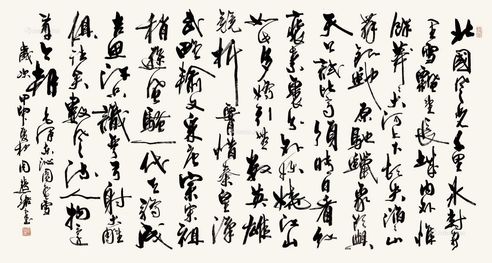 北國風光千里冰封萬
里雪飄望長城內外惟
餘莽莽大河上下頓失滔滔山
舞銀蛇原馳蠟象欲與
天公試比高須晴日看紅
裝素裹分外妖嬈江山
如此多嬌引無數英雄
競折腰惜秦皇漢
武略輸文采唐宗宋祖
稍遜風騷一代天驕成
吉思汗只識彎弓射大雕
俱往矣數風流人物還
看今朝 毛澤東沁園春雪
歲次甲午